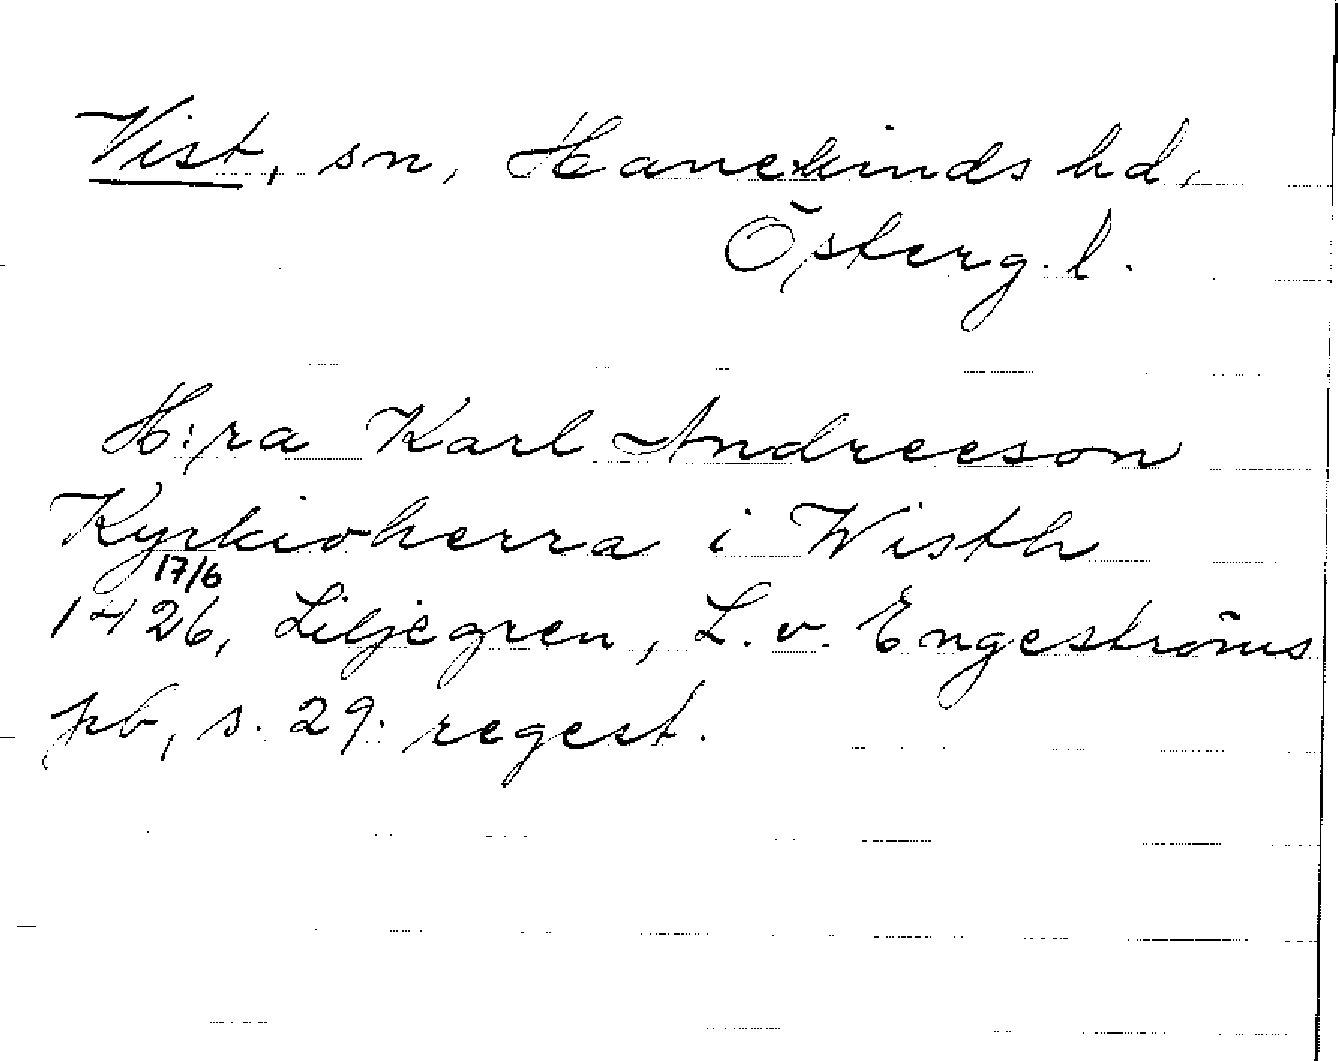 Vist, sn, Hanekinds hd,
Österg. l.
H:ra Karl Andreeson
Kyrkioherra i Wisth
17/6
1426, Liljegren, L. v. Engeströms
pb, s. 29: regest.